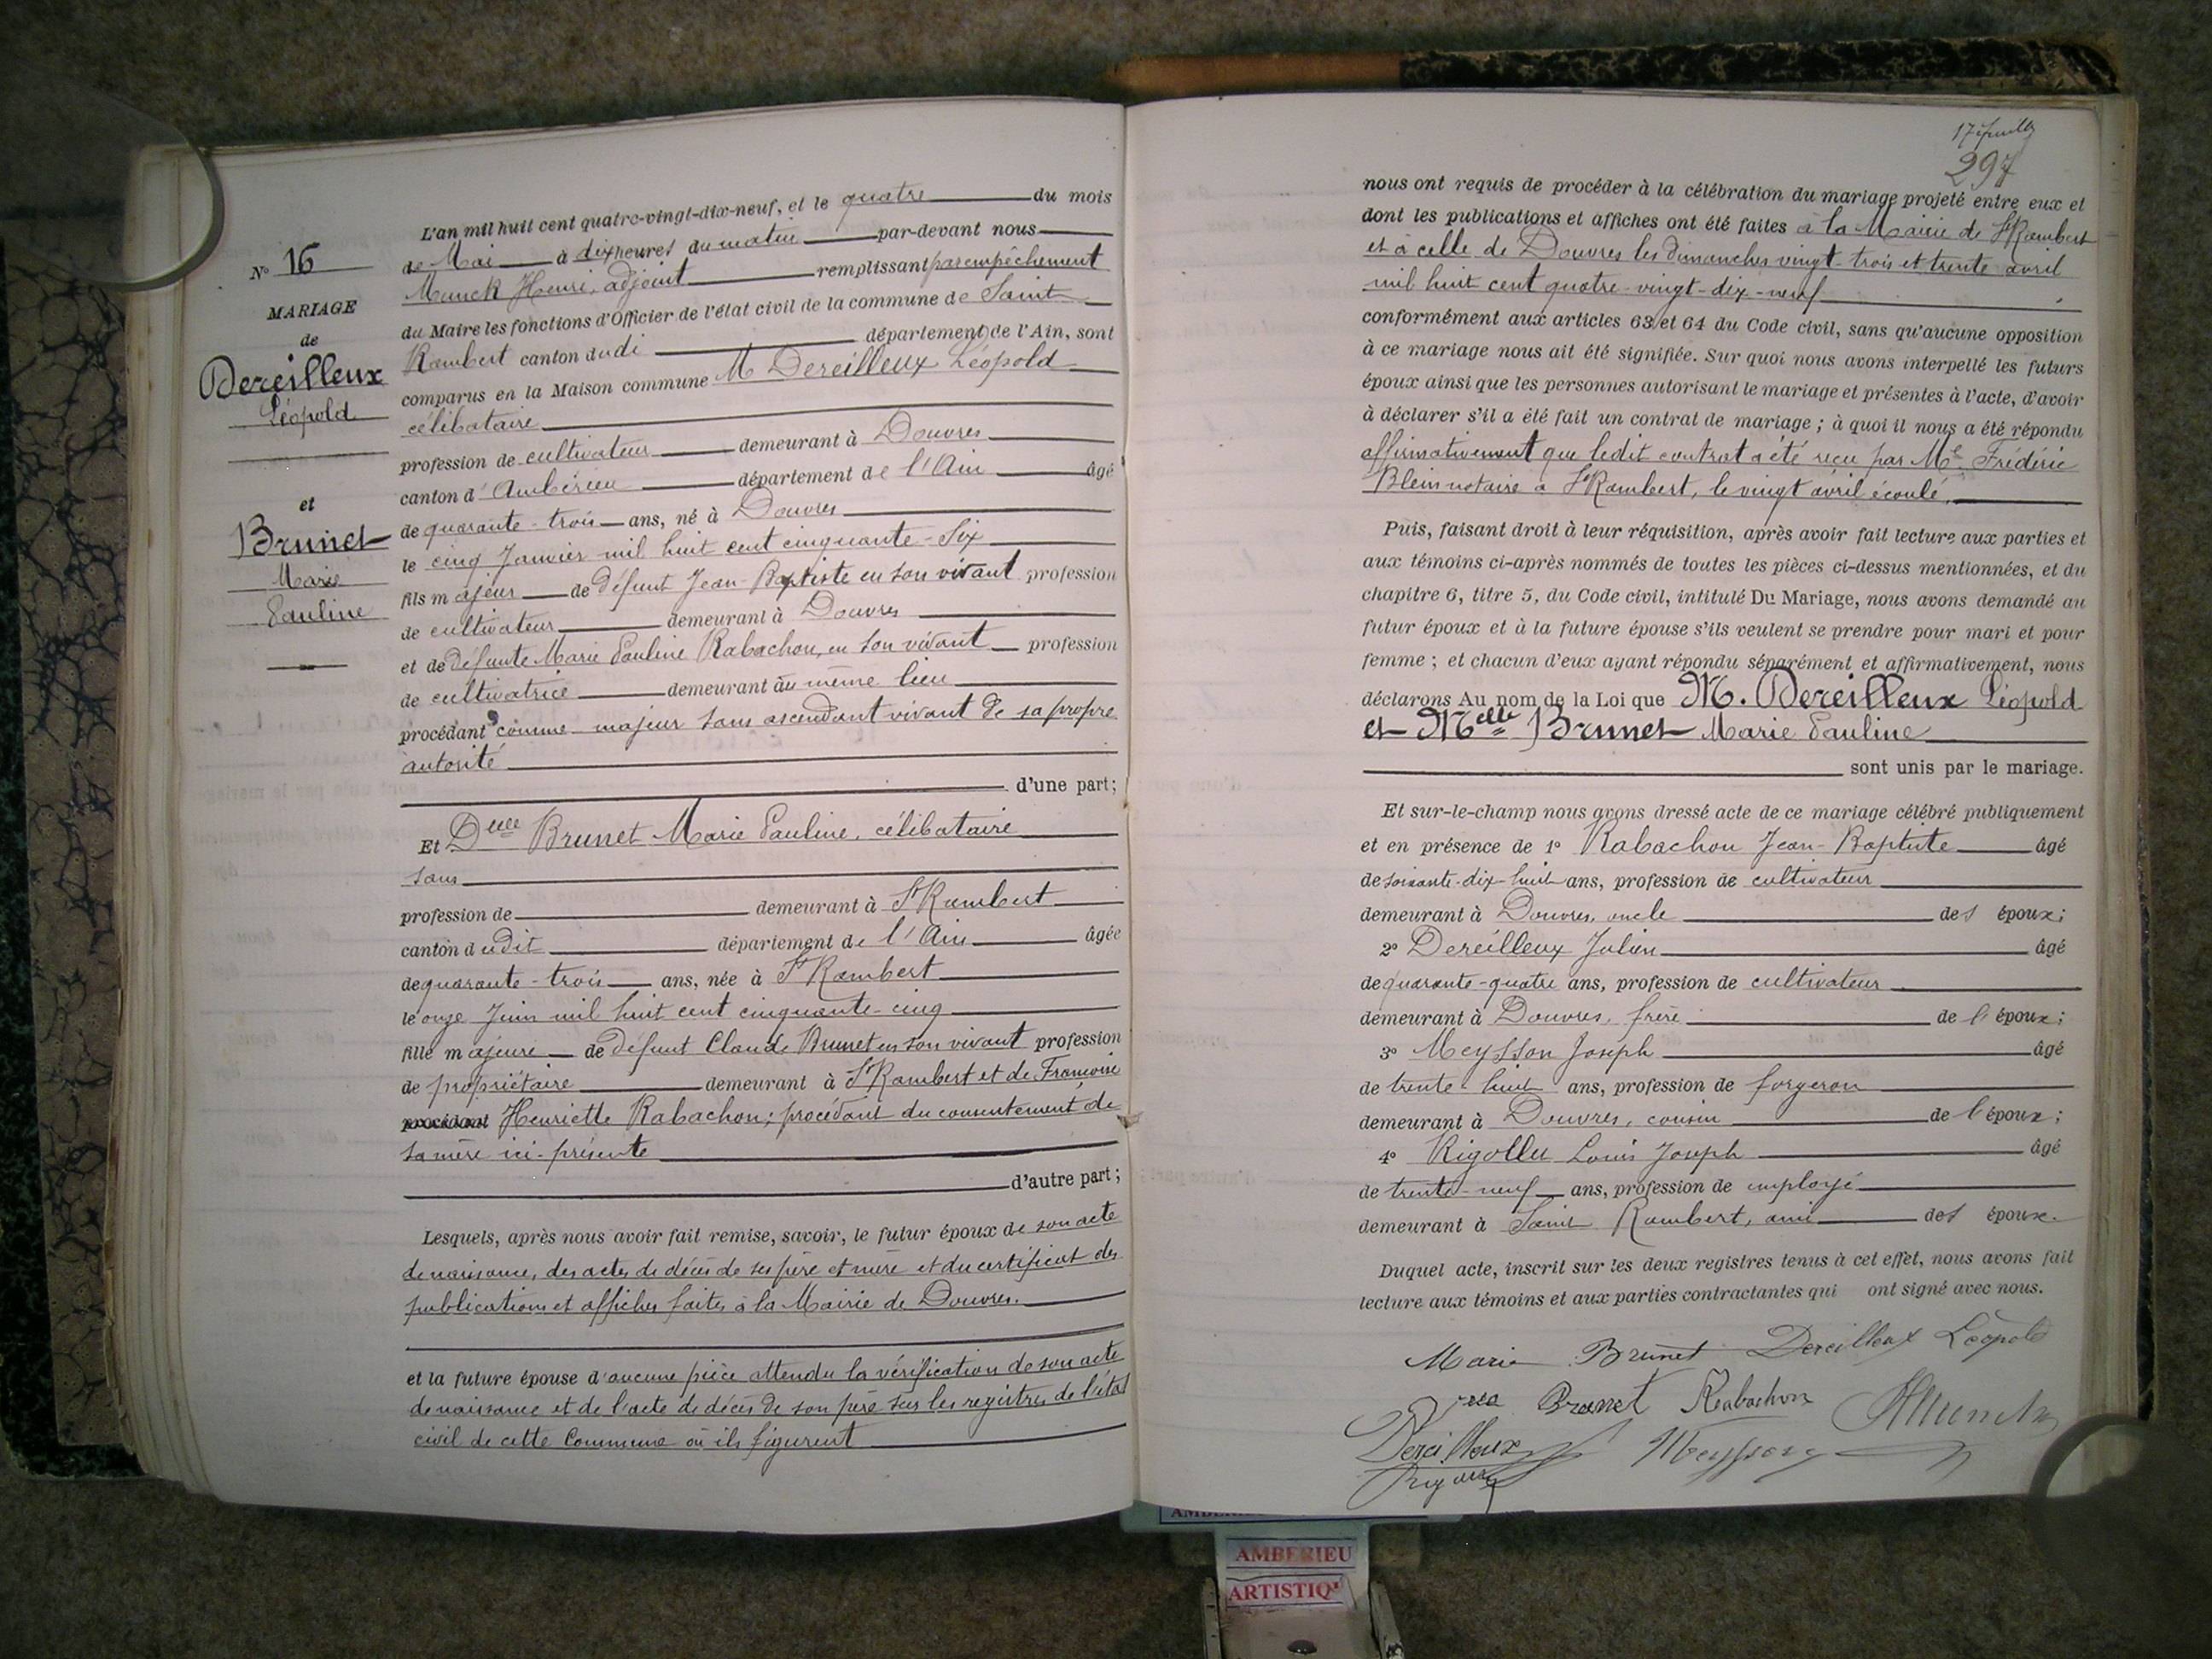 N° 16
MARIAGE
de
Dereilleux
Léopold
et
Brunet
Marie
Pauline
L'an mil huit cent quatre-vingt-dix-neuf, et le quatre du mois
de Mai à dix heures du matin par-devant nous
Munck Henri, adjoint remplissant par empêchement
du Maire les fonctions d'Officier de l'état civil de la commune de Saint
Rambert canton dudi département de l'Ain, sont
comparus en la Maison commune M Dereilleux Léopold
célibataire
profession de cultivateur demeurant à Douvres
canton d'Ambérieu département de l'Ain âgé
de quarante-trois ans, né à Douvres
le cinq Janvier mil huit cent cinquante-Six
fils majeur de défunt Jean-Baptiste en son vivant profession
de cultivateur demeurant à Douvres
et de défunte Marie Pauline Rabachon, en son vivant profession
de cultivatrice demeurant au même lieu
procédant comme majeur sans ascendant vivant de sa propre
autorité
d'une part;
Et Delle Brunet Marie Pauline, célibataire
sans
profession de demeurant à St Rambert
canton dudit département de l'Ain âgée
de quarante-trois ans, née à St Rambert
le onze Juin mil huit cent cinquante-cinq
fille majeure de défunt Claude Brunet en son vivant profession
de propriétaire demeurant à St Rambert et de Françoise
procédant Henriette Rabachon; procédant du consentement de
sa mère ici-présente
d'autre part;
Lesquels, après nous avoir fait remise, savoir, le futur époux de son acte
de naissance, des actes de décès de ses père et mère et du certificat des
publications et affiches faites à la Mairie de Douvres.
et la future épouse d'aucune pièce attendu la vérification de son acte
de naissance et de l'acte de décès de son père sur les registres de l'état
civil de cette Commune où ils figurent
297
nous ont requis de procéder à la célébration du mariage projeté entre eux et
dont les publications et affiches ont été faites à la Mairie de St Rambert
et à celle de Douvres les dimanches vingt-trois et trente avril
mil huit cent quatre-vingt-dix-neuf
conformément aux articles 63 et 64 du Code civil, sans qu'aucune opposition
à ce mariage nous ait été signifiée. Sur quoi nous avons interpellé les futurs
époux ainsi que les personnes autorisant le mariage et présentes à l'acte, d'avoir
à déclarer s'il a été fait un contrat de mariage; à quoi il nous a été répondu
affirmativement que ledit contrat a été reçu par Me Frédéric
Blein notaire à St Rambert, le vingt avril écoulé.
Puis, faisant droit à leur réquisition, après avoir fait lecture aux parties et
aux témoins ci-après nommés de toutes les pièces ci-dessus mentionnées, et du
chapitre 6, titre 5, du Code civil, intitulé Du Mariage, nous avons demandé au
futur époux et à la future épouse s'ils veulent se prendre pour mari et pour
femme; et chacun d'eux ayant répondu séparément et affirmativement, nous
déclarons Au nom de la Loi que M. Dereilleux Léopold
et Melle Brunet Marie Pauline
sont unis par le mariage.
Et sur-le-champ nous avons dressé acte de ce mariage célébré publiquement
et en présence de 1° Rabachon Jean-Baptiste âgé
de soixante-dix-huit ans, profession de cultivateur
demeurant à Douvres, oncle des époux;
2° Dereilleux Julien âgé
de quarante-quatre ans, profession de cultivateur
demeurant à Douvres, frère de l'époux;
3° Meysson Joseph âgé
de trente-huit ans, profession de forgeron
demeurant à Douvres, cousin de l'époux;
4° Rigollu Louis Joseph âgé
de trente-neuf ans, profession de employé
demeurant à Saint Rambert, ami des époux.
Duquel acte, inscrit sur les deux registres tenus à cet effet, nous avons fait
lecture aux témoins et aux parties contractantes qui ont signé avec nous.
Marie Brunet Dereilleux Léopold
Brunet Rabachon HMunck
Dereilleux Meysson
AMBERIEU
ARTISTIQ